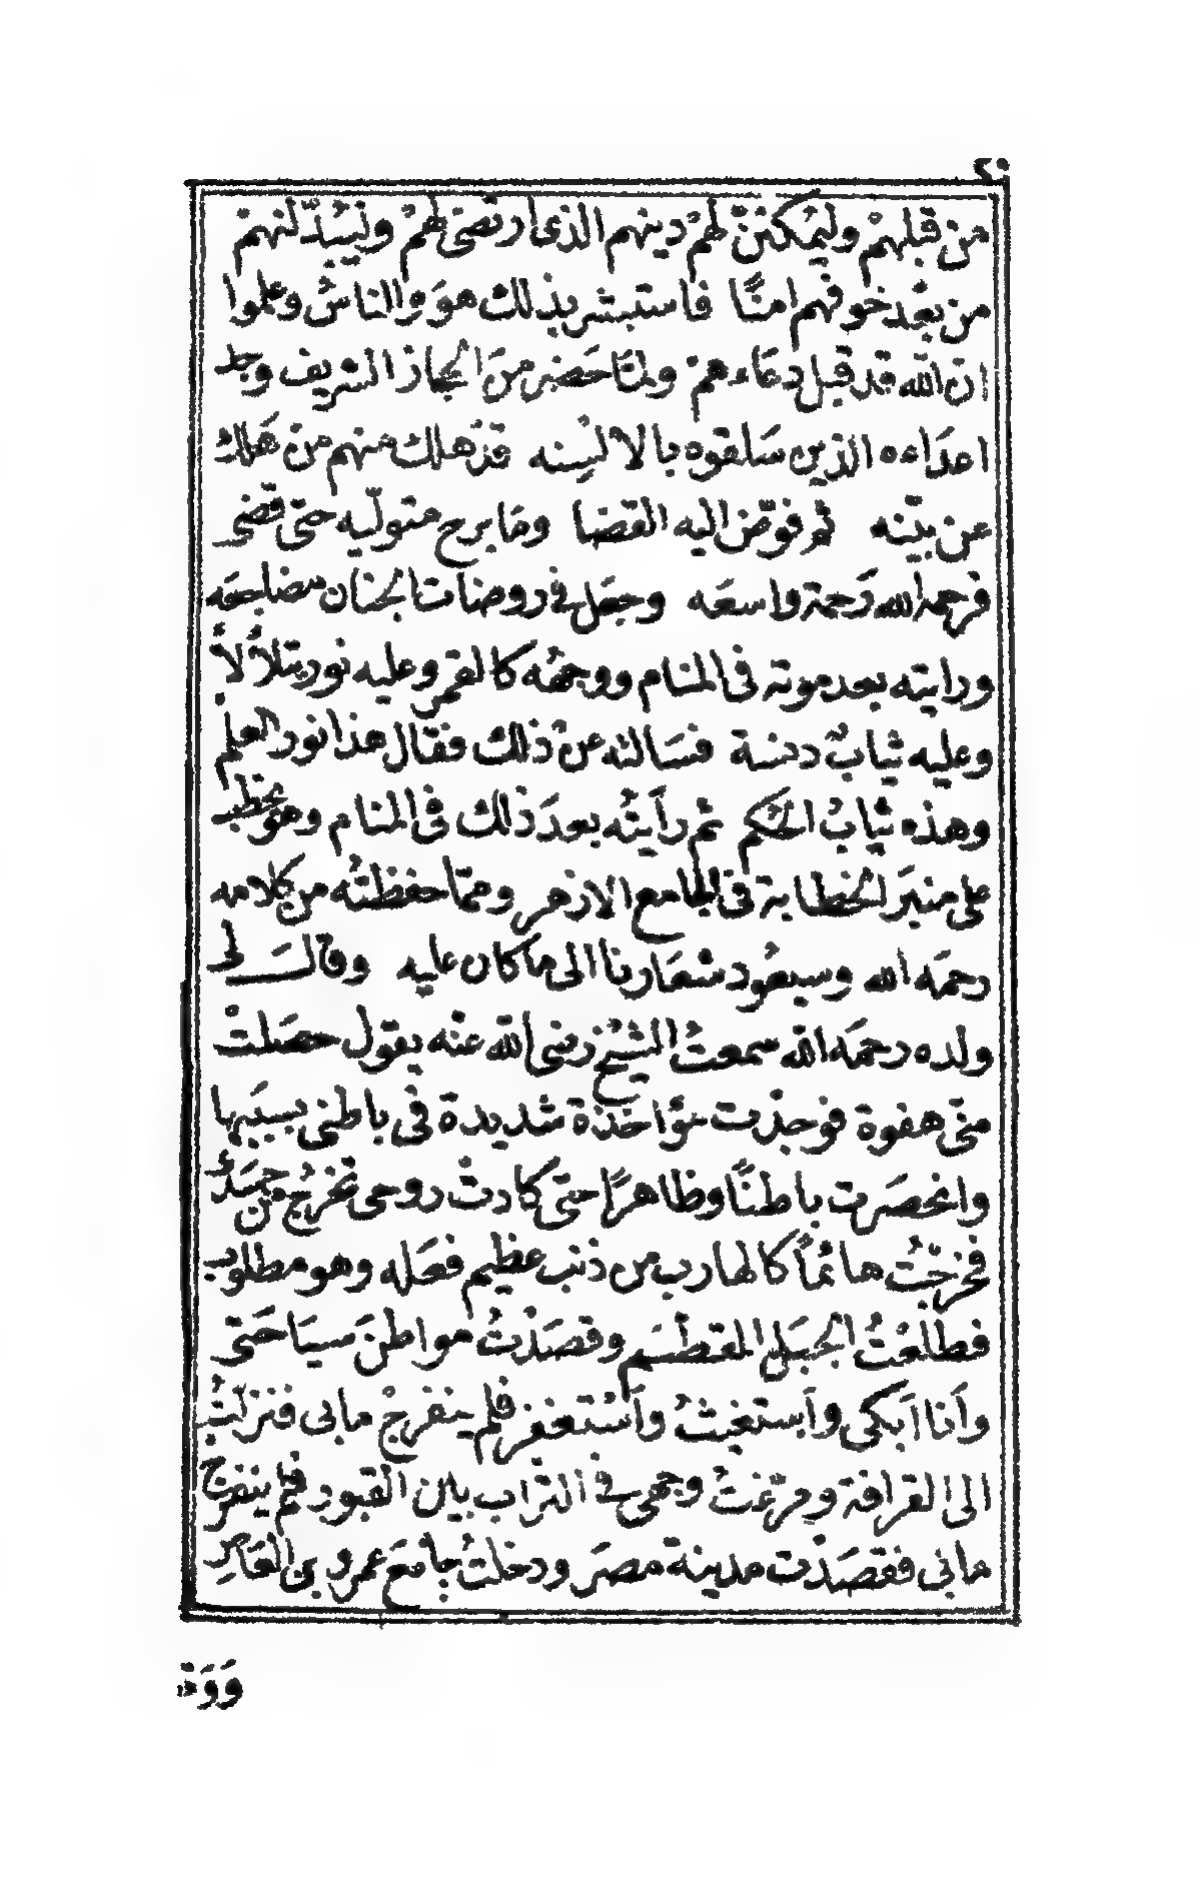 ٢٠
من قبلهمْ وليمُكننّ لهمْ دينهم الذى ارتضى لهمْ وليُبدّلنهم
من بعْد خوفهم امنًا فاستبشر بذلك هوَ والناسُ وعلموا
ان الله قد قبل دعَاءهمْ ولمّا حَضر منَ الحجاز الشريف وجد
اعدَاءه الذين سَلقوه بالالسِنه قدْ هلك منهم منْ هَلك
عن بيّنه ثم فوّض اليه القضا ومَا برح متوليّه حتى قضى
فرحمه الله رَحمة واسعَه وجعَل فى روضات الجنان مضاجعَه
ورايته بعد موته فى المنام ووجهُه كالقمر وعليه نور يتلألأ
وعليه ثيابٌ دنسة فسَالته عنْ ذلك فقال هذا نور العلم
وهذه ثيابُ الحُكم ثم رأيتُه بعدَ ذلك فى المنام وهوَ يخطب
على منبَر الخطابة فى الجامع الازهر وممّا حفظتُه من كلامه
رحمَه الله وسيعُود شعَارنا الى ما كان عليه وقالَ لى
ولده رحمَه الله سمعتُ الشيْخ رضى الله عنْه يقول حصَلتْ
منّى هفوة فوجدْت مؤاخذة شديدة فى باطنى بسببَها
وانحصَرت باطنًا وظاهرًا حتى كادتْ روحى تخرُج من جسَدى
فخرجْتُ هائمًا كالهارب من ذنب عظيم فعَله وهو مطلوب
فطلعْتُ الجبَل المقطسَم وقصَدْتُ مواطنَ سيَاحَتى
وأنا أبكى وأستغيثُ وأسْتغفر فلم ينفرجْ مابى فنزلتُ
الى القرافة ومرّغتُ وجهى فى التراب بين القبور فلم ينفرج
مابى فقصَدْت مدينة مصَر ودخلتُ جامَع عمرو بن العَاص
وَوَقـ